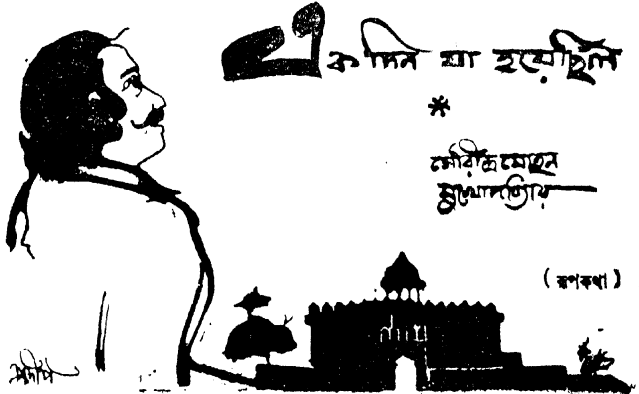 একদিন যা হয়েছিল
*
সৌরীন্দ্রমোহন
মুখোপাধ্যায়
(রূপকথা)